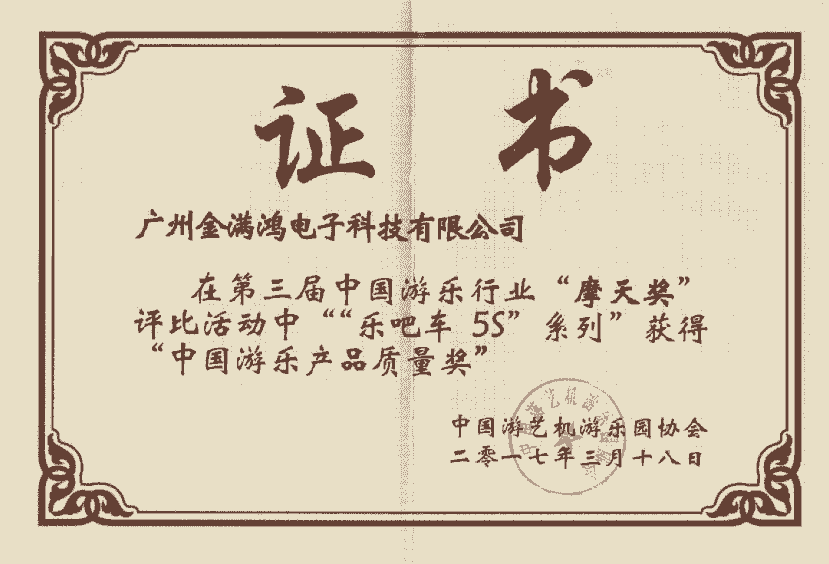 证书
广州金满鸿电子科技有限公司
在第三届中国游乐行业“摩天奖”
评比活动中““乐吧车 5S”系列”获得
“中国游乐产品质量奖”
中国游艺机游乐园协会
二零一七年三月十八日